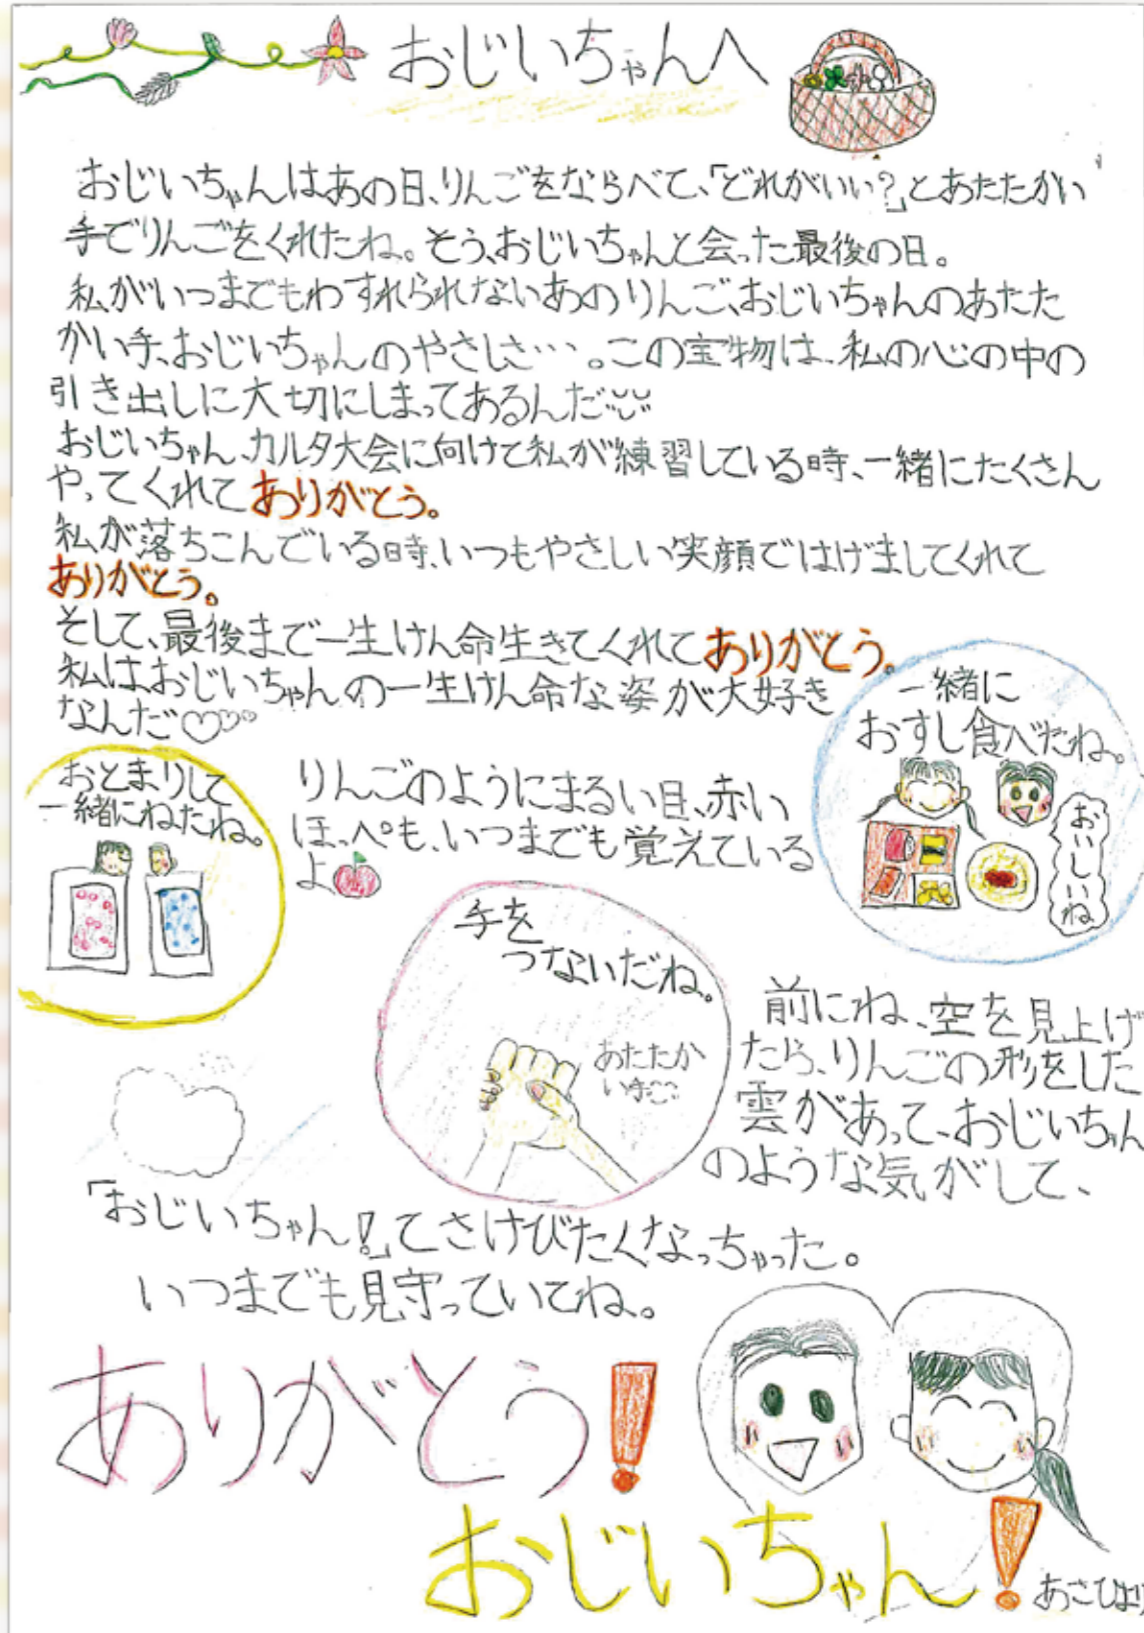 おじいちゃんへ
おじいちゃんはあの日、りんごをならべて、「どれがいい?」とあたたかい
手でりんごをくれたね。そう、おじいちゃんと会った最後の日。
私がいつまでもわすれられないあのりんご、おじいちゃんのあたた
かい手、おじいちゃんのやさしさ…。この宝物は、私の心の中の
引き出しに大切にしまってあるんだ
おじいちゃん、カルタ大会に向けて私が練習している時、一緒にたくさん
やってくれてありがとう。
私が落ちこんでいる時、いつもやさしい笑顔ではげましてくれて
ありがとう。
そして、最後まで一生けん命生きてくれてありがとう。
私は、おじいちゃんの一生けん命な姿が大好き
なんだ♡♡♡
一緒に
おすし食べたね。
おいしいね
おとまりして
一緒にねたね。
りんごのようにまるい目、赤い
ほっぺも、いつまでも覚えている
よ
手を
つないだね。
あたたか
い手
前にね、空を見上げ
たら、りんごの形をした
雲があって、おじいちゃん
のような気がして、
「おじいちゃん!」てさけびたくなっちゃった。
いつまでも見守っていてね。
ありがとう!
おじいちゃん!
あさひより